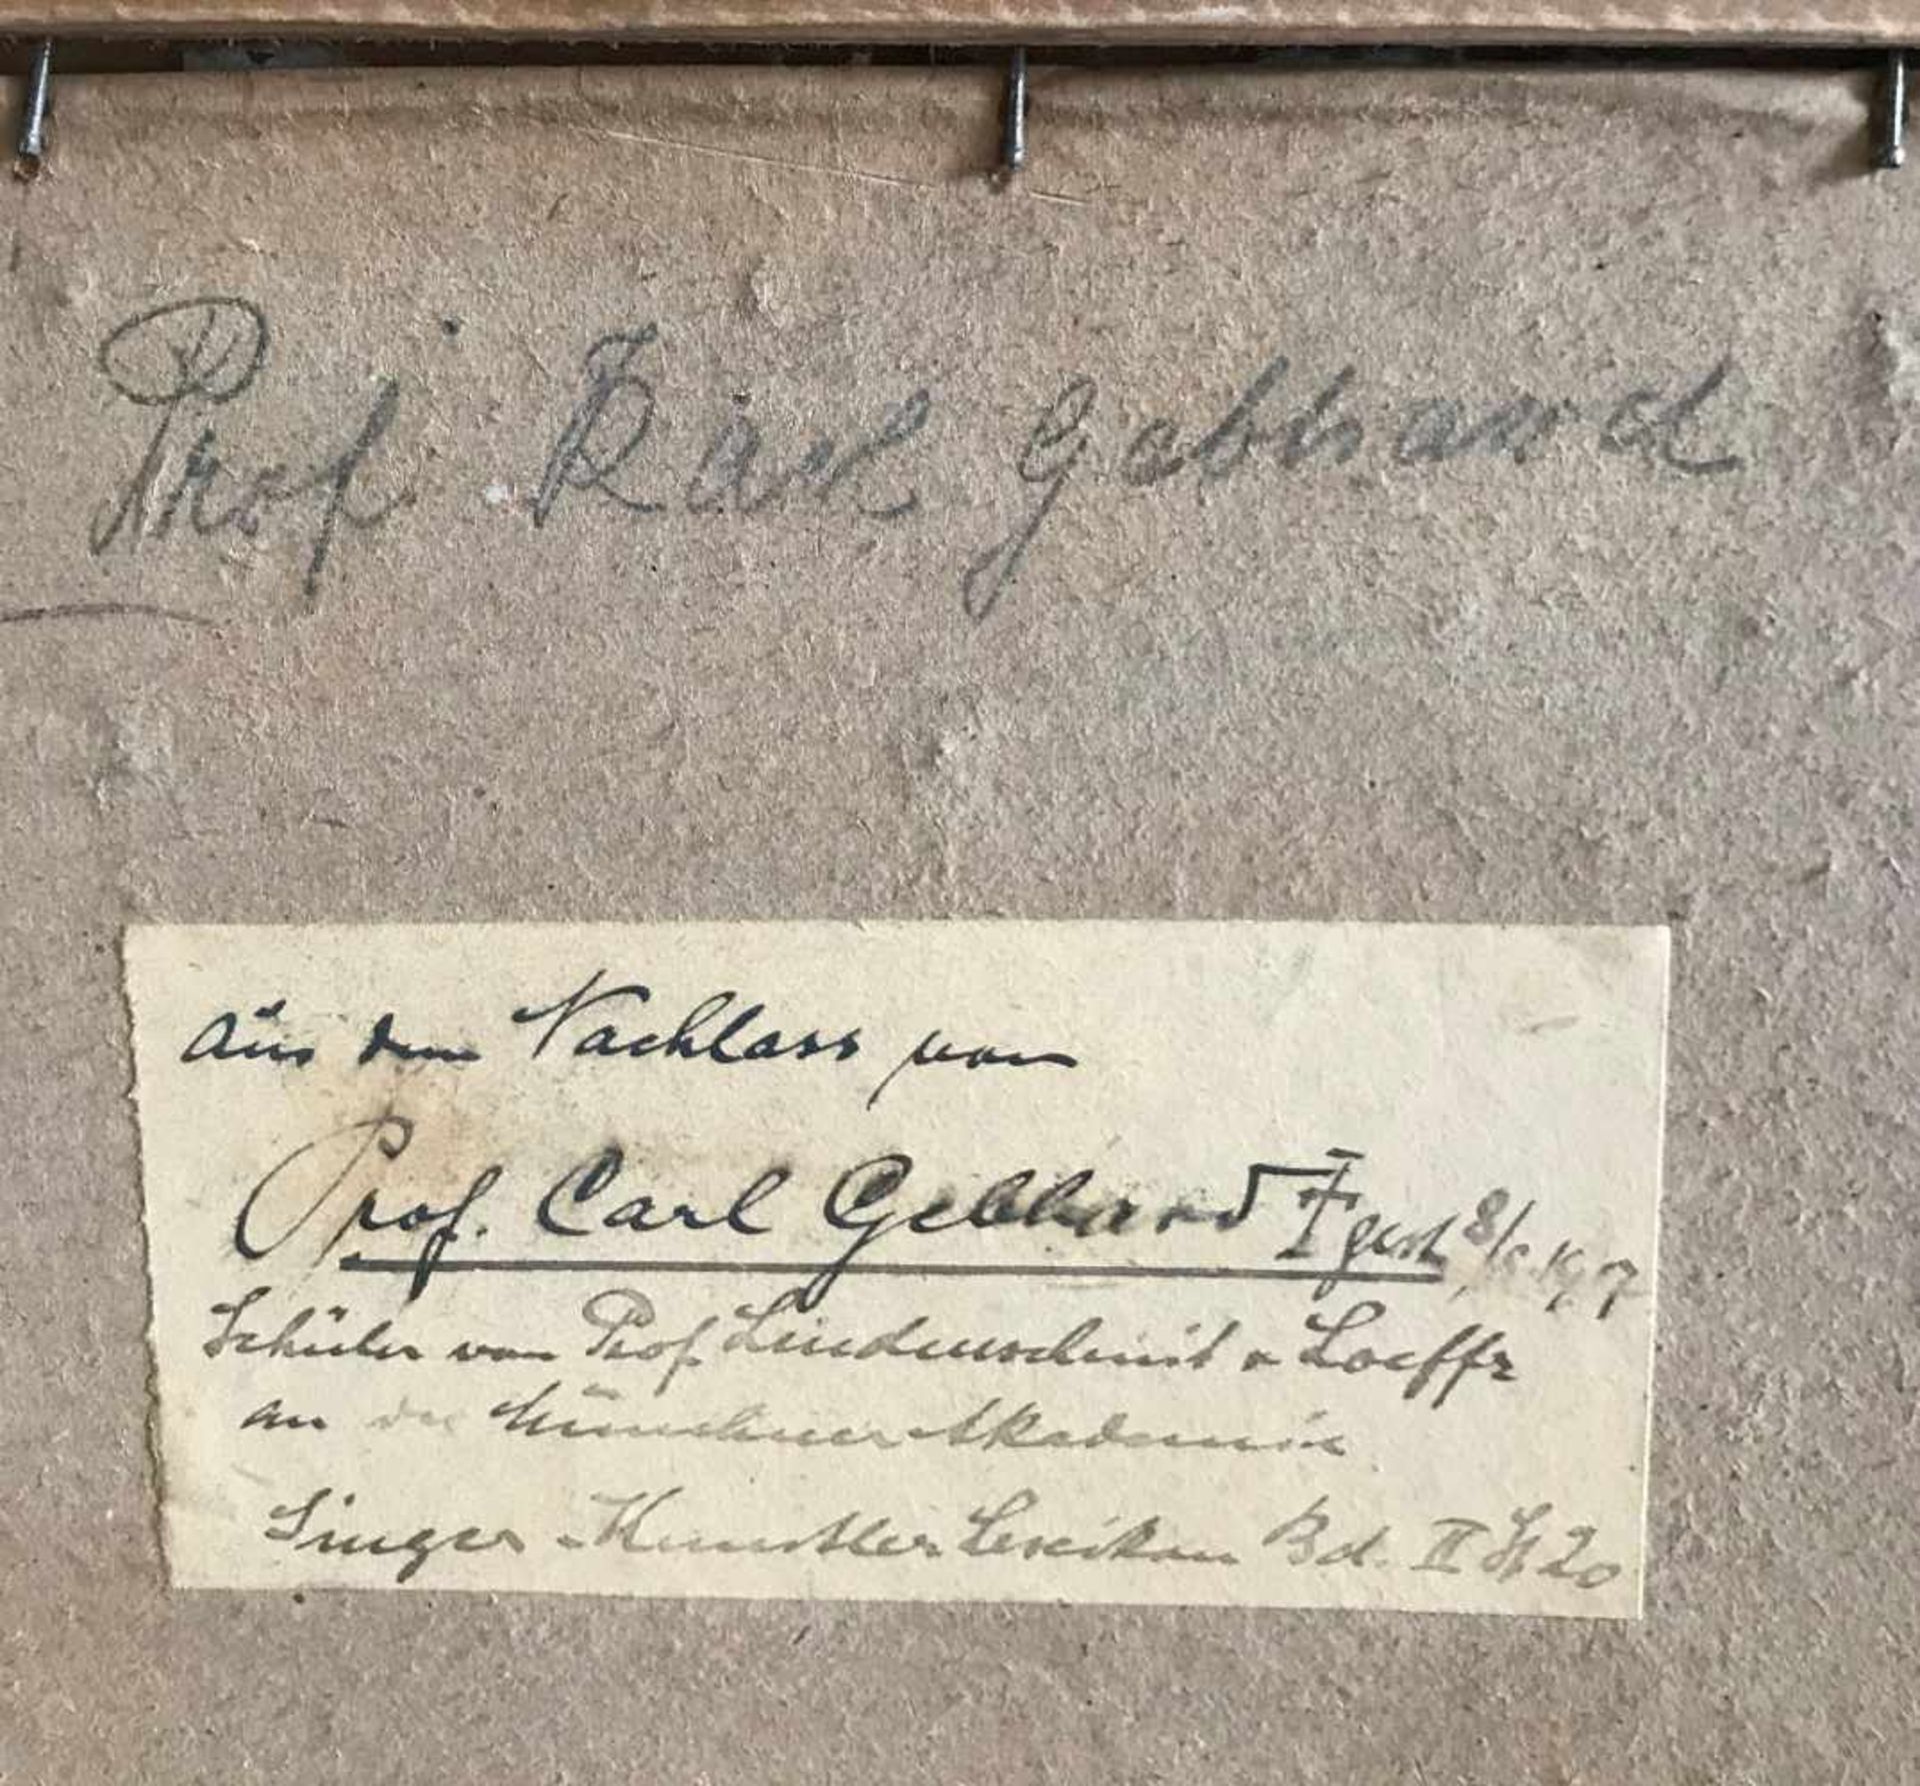 Prof. Karl Gebhard
aus dem Nachlass von
Prof. Carl Gebhard † gest 8/
Schüler von Prof. Lindenschmit u Loefftz
an der Münchner Akademie
Singer - Kunstler Lexikon Bd. II S 20